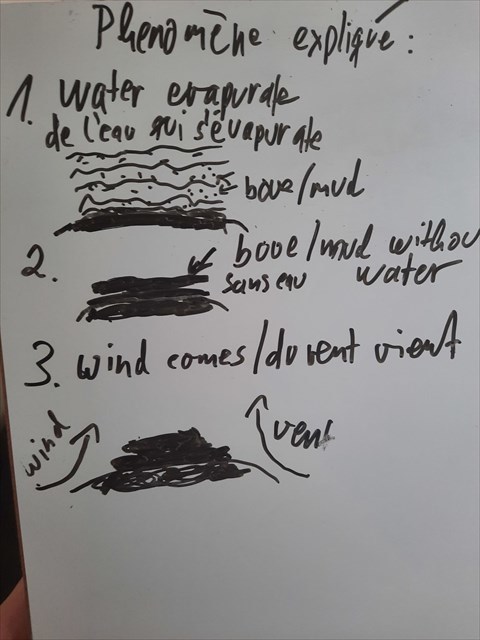 Phenomène expliqué :
1. water evapurate
de l'eau qui s'évapurate
boue/mud
2. boue/mud withou
sans eau water
3. wind comes/du vent vient
wind
vent